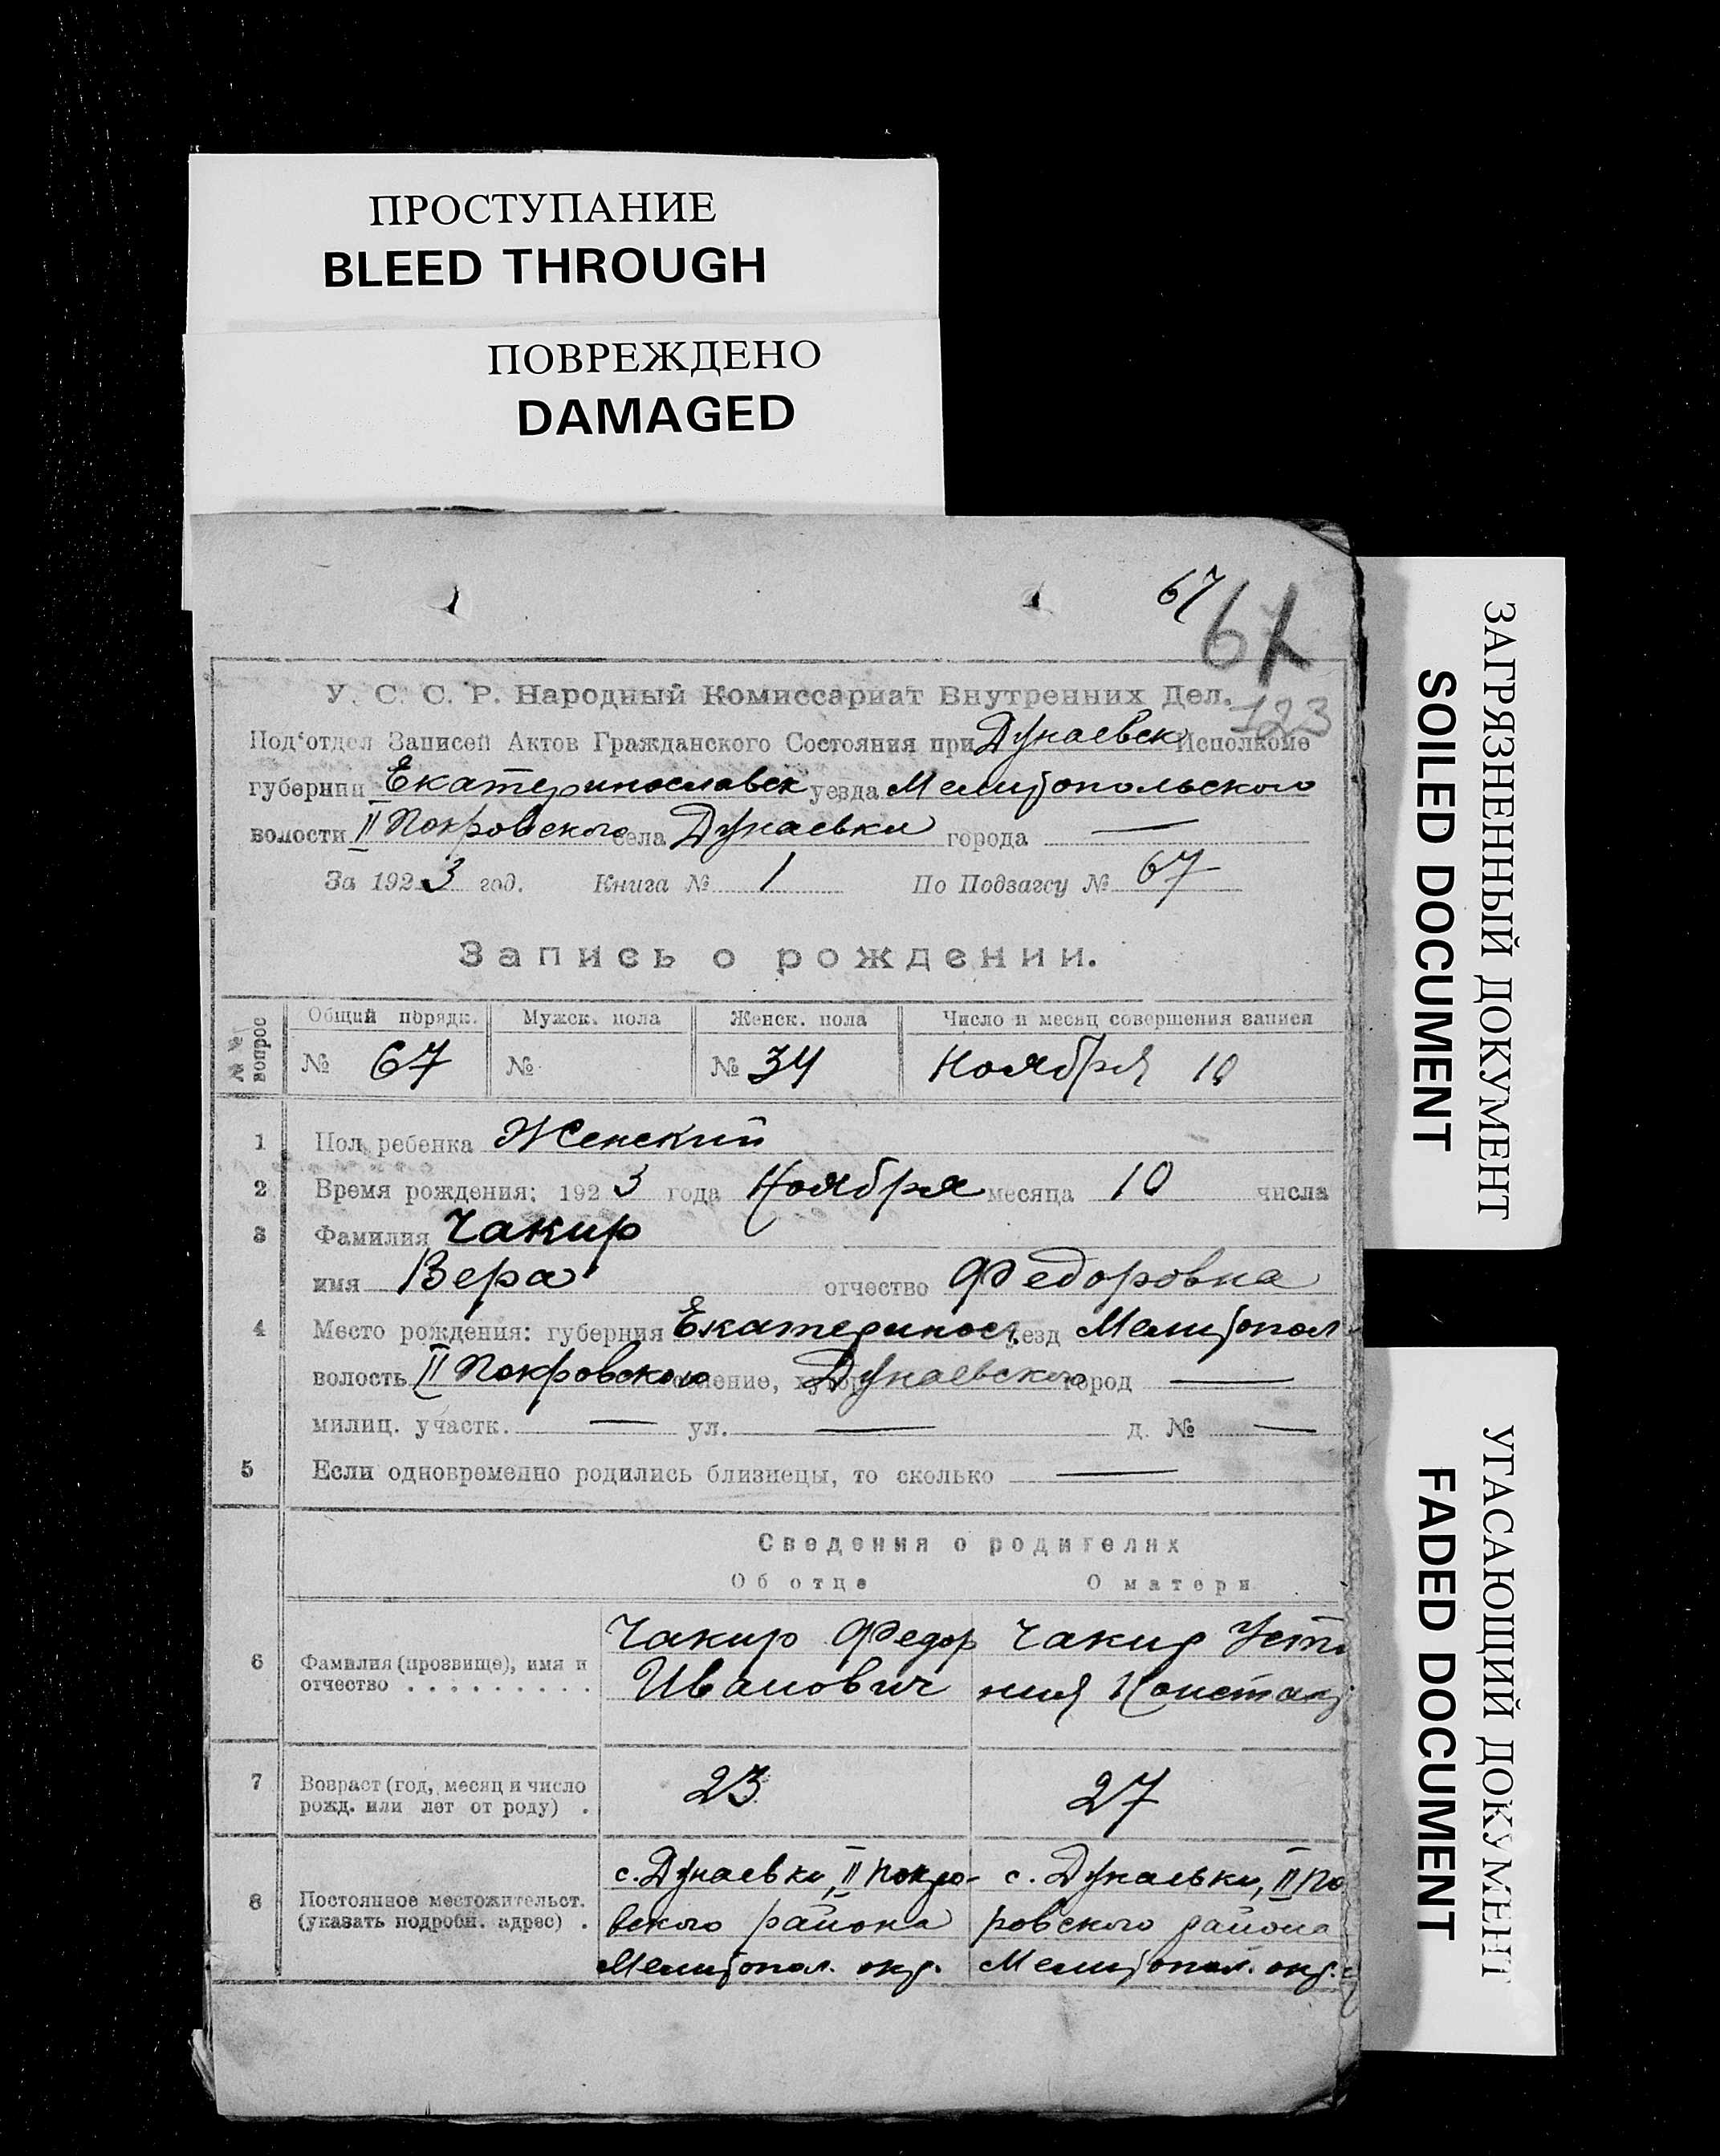 ПРОСТУПАНИЕ
BLEED THROUGH
ПОВРЕЖДЕНО
DAMAGED
67
67
123
У. С. С. Р. Народный Комиссариат Внутренних Дел.
Под'отдел Записей Актов Гражданского Состояния при Дунаевск Исполкоме
губернии Екатеринославск уезда Мелитопольского
волости II Покровского села Дунаевки города —
За 1923 год. Книга № 1 По Подзагсу № 67
Запись о рождении.
№№ вопрос
Общий порядк. Мужск. пола Женск. пола Число и месяц совершения записи
№ 67 № № 34 Ноября 10
1 Пол ребенка Женский
2 Время рождения: 1923 года Ноября месяца 10 числа
3 Фамилия Чакир
имя Вера отчество Федоровна
4 Место рождения: губерния Екатериносл уезд Мелитопол
волость II Покровского селение, хутор Дунаевского город —
милиц. участк. — ул. — д. № —
5 Если одновременно родились близнецы, то сколько —
Сведения о родителях
Об отце О матери
6 Фамилия (прозвище), имя и отчество . . . . . . . . .
Чакир Федор
Иванович
Чакир Усти
ния Констант
7 Возраст (год, месяц и число рожд. или лет от роду) .
23 27
8 Постоянное местожительст. (указать подробн. адрес) .
с. Дунаевки, II Покро-
вского района
Мелитопол. окр.
с. Дунаевки, II По
ровского района
Мелитопол. окр.
ЗАГРЯЗНЕННЫЙ ДОКУМЕНТ
SOILED DOCUMENT
УГАСАЮЩИЙ ДОКУМЕНТ
FADED DOCUMENT